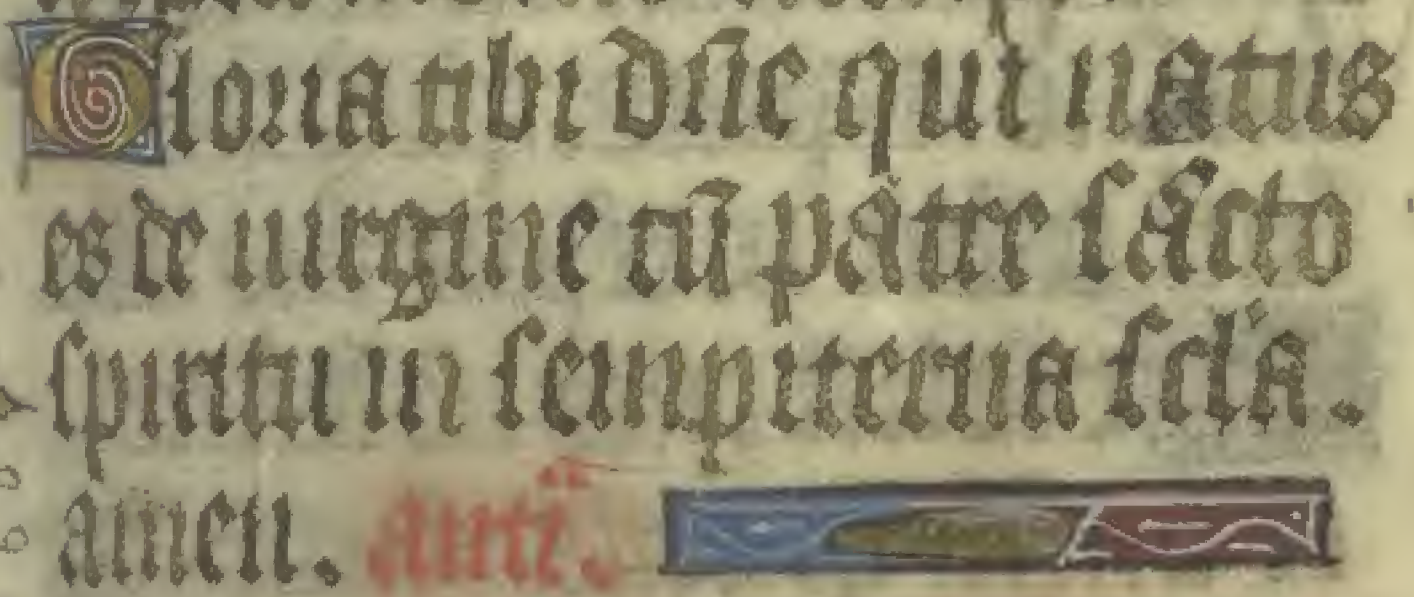 Gloria tibi dñe qui natus
es de uirgine cũ patre sãcto
spiritu in sempiterna scl̃a.
amen. añ.